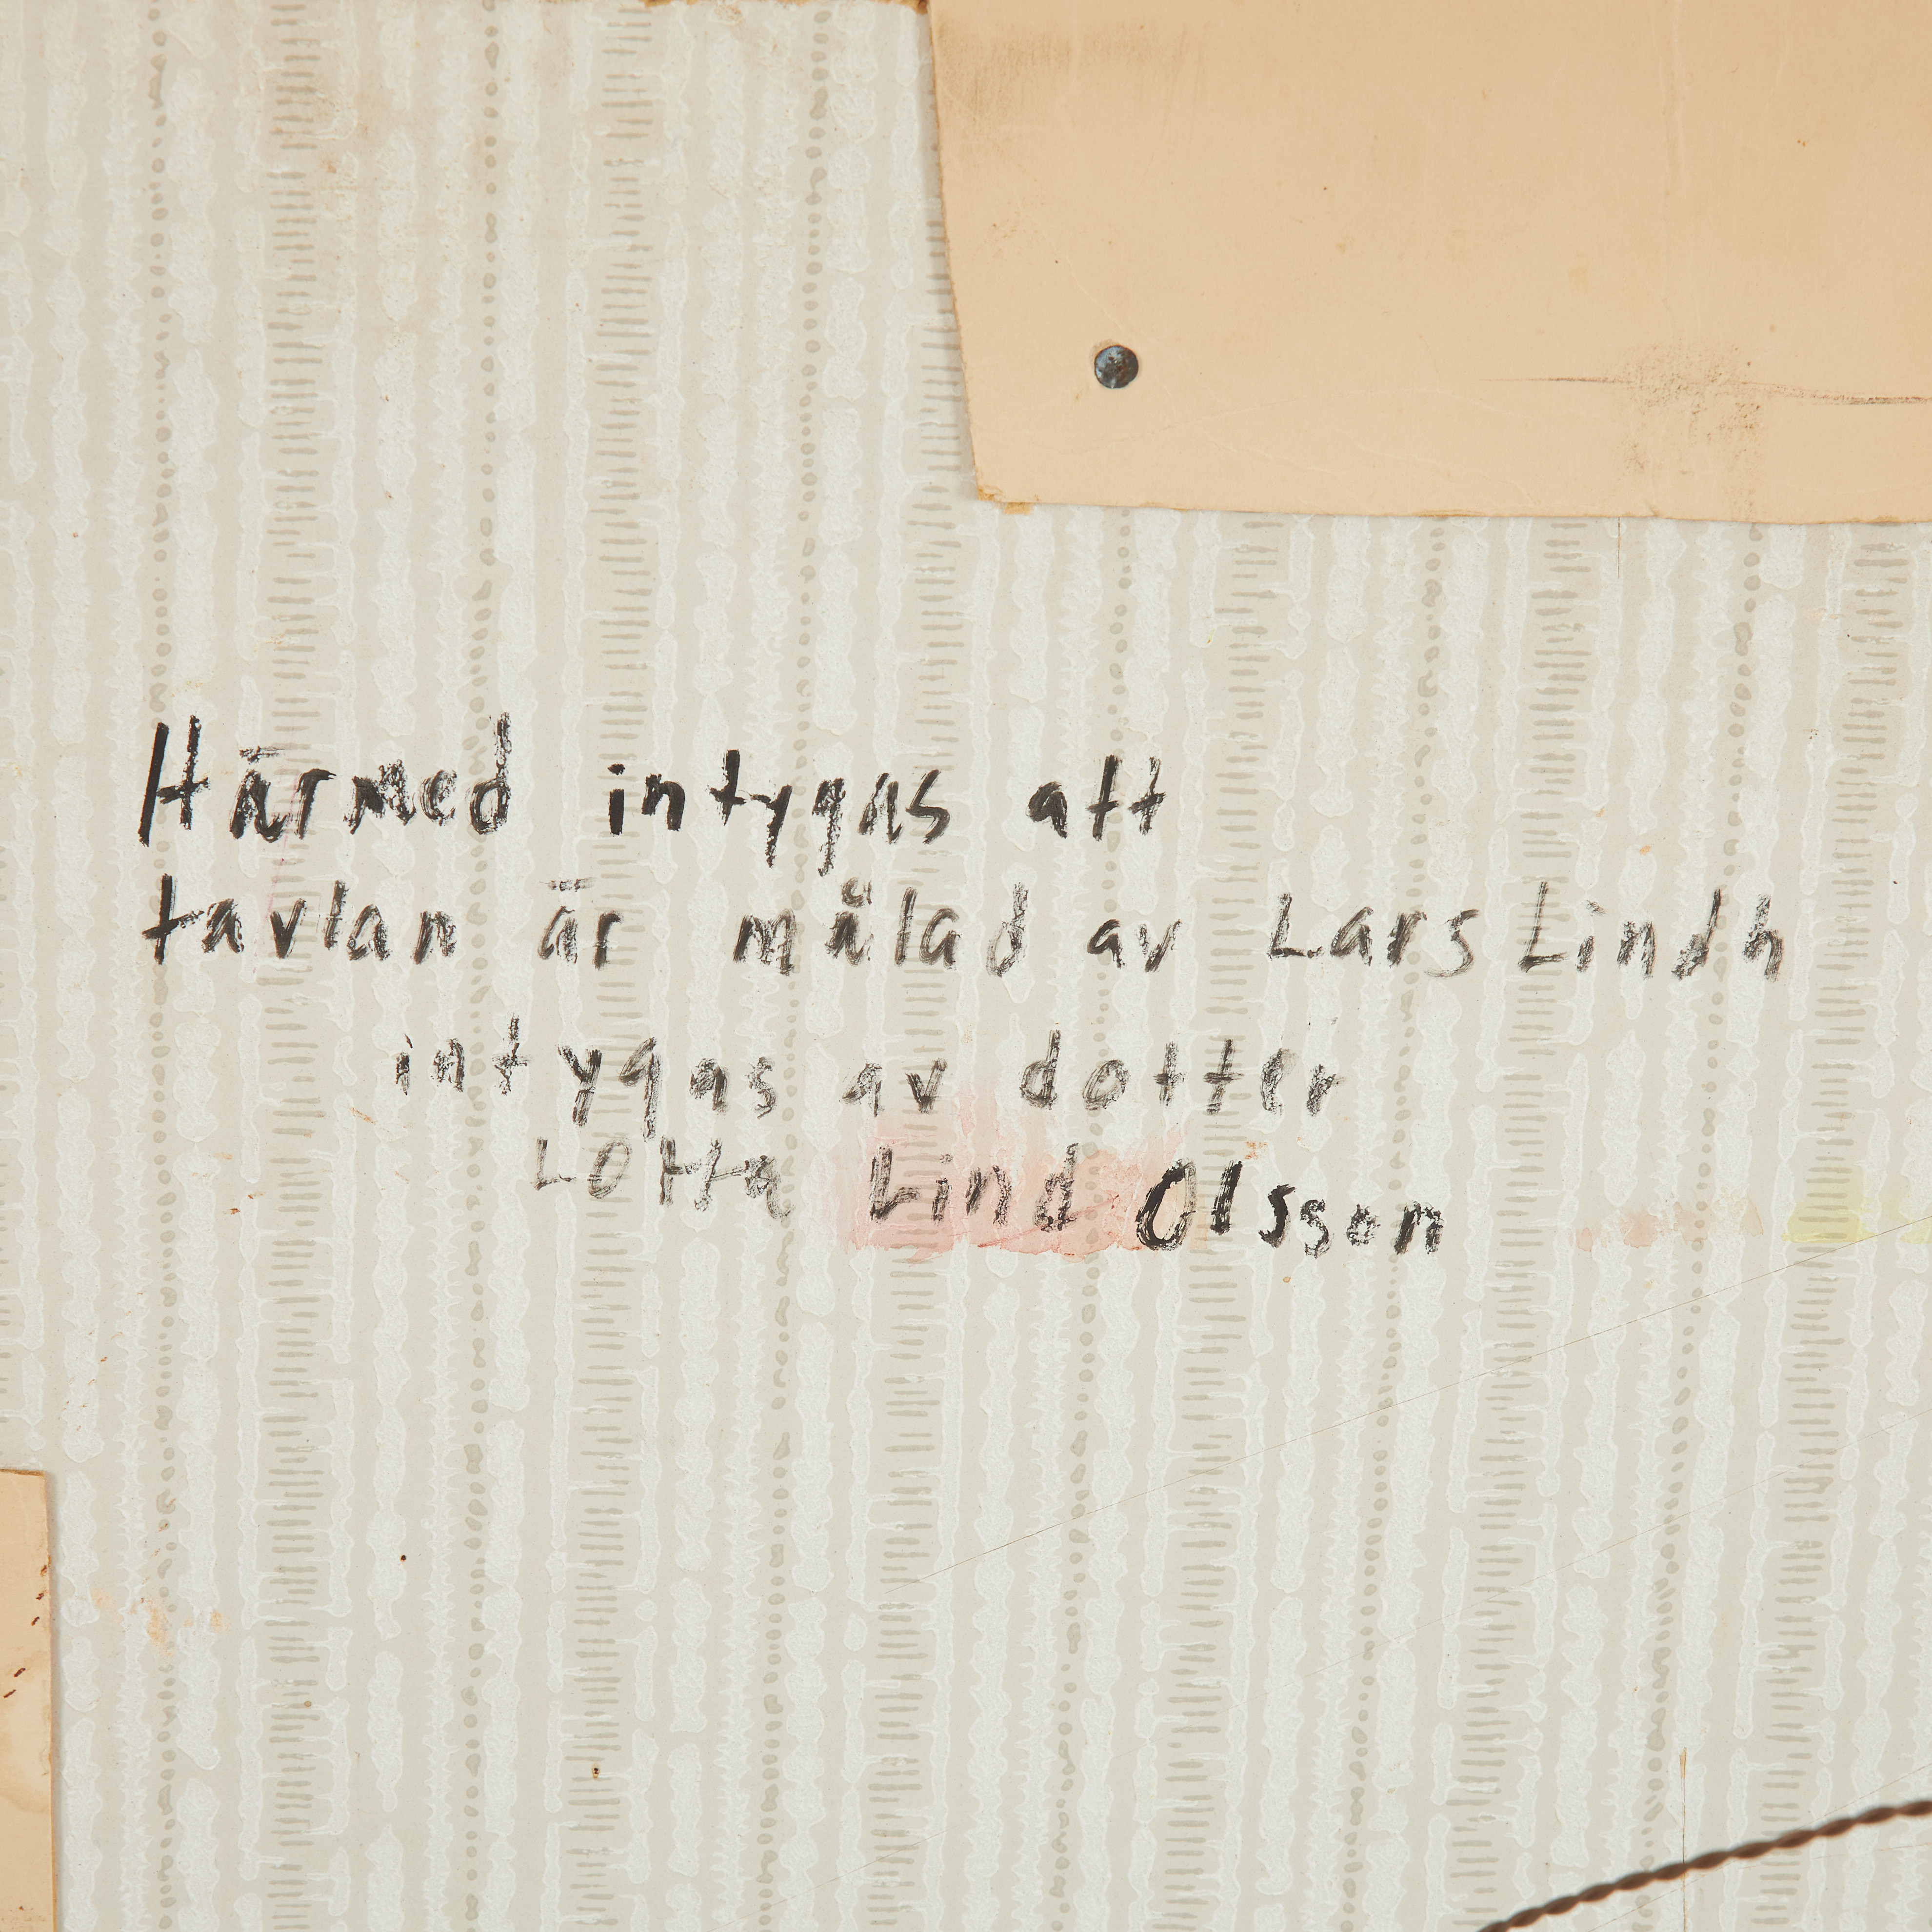 Härmed intygas att
tavlan är målad av Lars Lindh
intygas av dotter
Lotta Lind Olsson